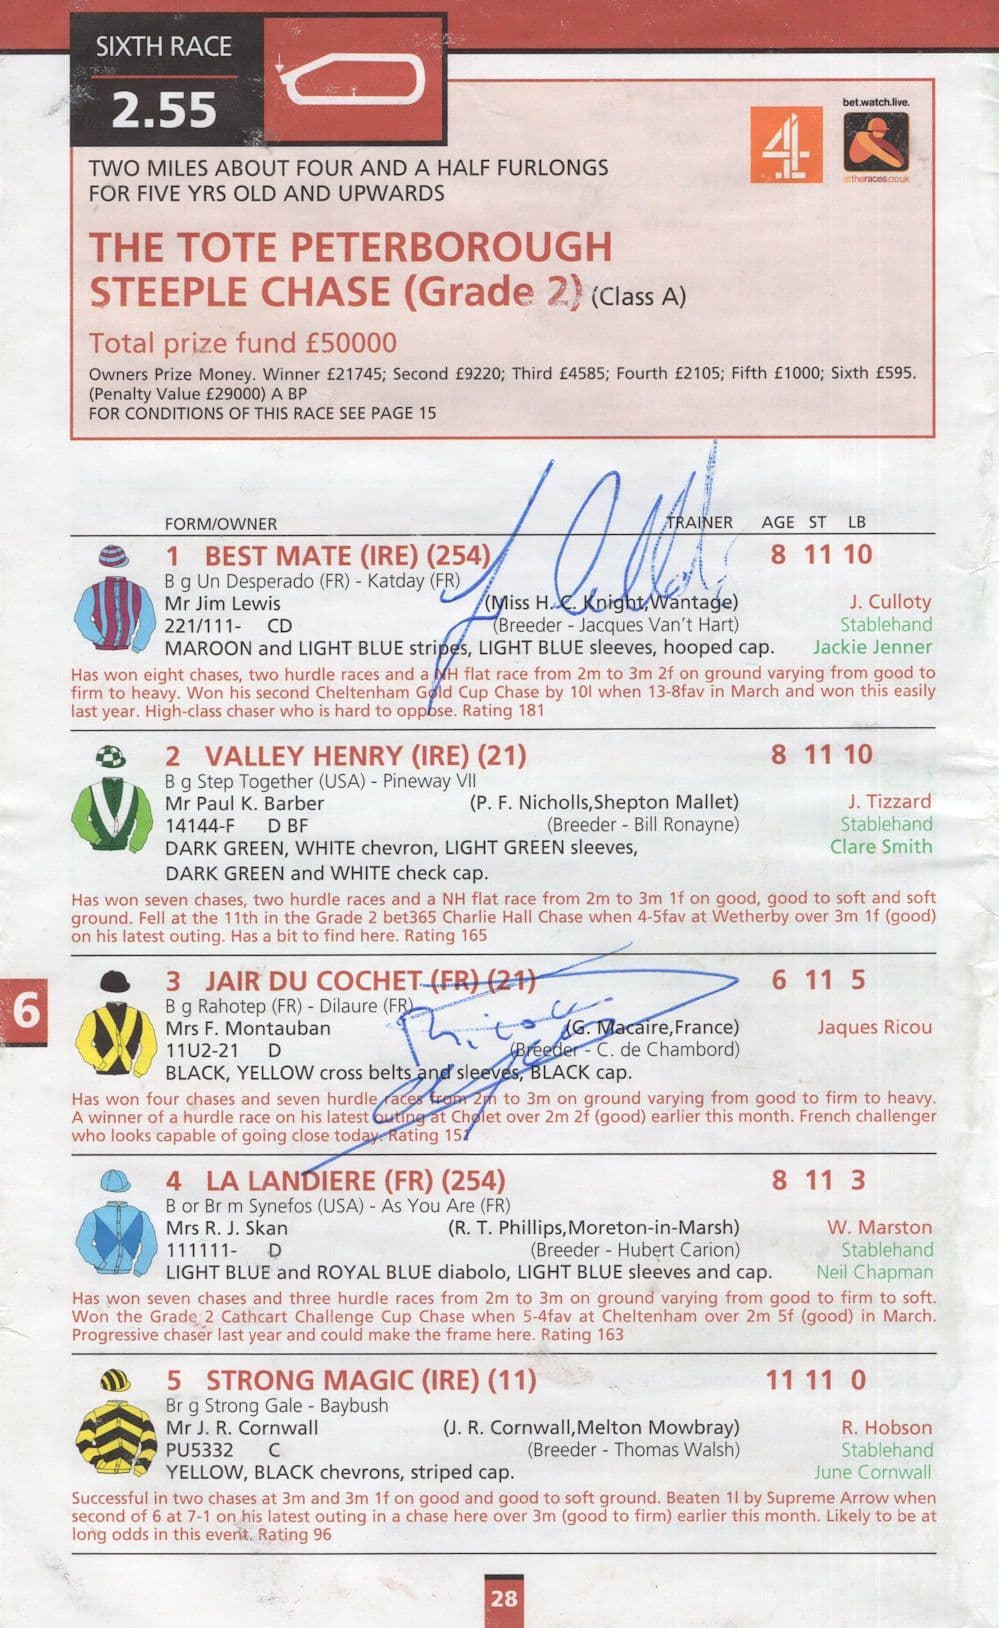 SIXTH RACE
2.55
bet.watch.live.
4
attheraces.co.uk
TWO MILES ABOUT FOUR AND A HALF FURLONGS
FOR FIVE YRS OLD AND UPWARDS
THE TOTE PETERBOROUGH
STEEPLE CHASE (Grade 2) (Class A)
Total prize fund £50000
Owners Prize Money. Winner £21745; Second £9220; Third £4585; Fourth £2105; Fifth £1000; Sixth £595.
(Penalty Value £29000) A BP
FOR CONDITIONS OF THIS RACE SEE PAGE 15
FORM/OWNER TRAINER AGE ST LB
1 BEST MATE (IRE) (254) 8 11 10
B g Un Desperado (FR) - Katday (FR)
Mr Jim Lewis (Miss H. C. Knight,Wantage) J. Culloty
221/111- CD (Breeder - Jacques Van't Hart) Stablehand
MAROON and LIGHT BLUE stripes, LIGHT BLUE sleeves, hooped cap. Jackie Jenner
Has won eight chases, two hurdle races and a NH flat race from 2m to 3m 2f on ground varying from good to
firm to heavy. Won his second Cheltenham Gold Cup Chase by 10l when 13-8fav in March and won this easily
last year. High-class chaser who is hard to oppose. Rating 181
2 VALLEY HENRY (IRE) (21) 8 11 10
B g Step Together (USA) - Pineway VII
Mr Paul K. Barber (P. F. Nicholls,Shepton Mallet) J. Tizzard
14144-F D BF (Breeder - Bill Ronayne) Stablehand
DARK GREEN, WHITE chevron, LIGHT GREEN sleeves, Clare Smith
DARK GREEN and WHITE check cap.
Has won seven chases, two hurdle races and a NH flat race from 2m to 3m 1f on good, good to soft and soft
ground. Fell at the 11th in the Grade 2 bet365 Charlie Hall Chase when 4-5fav at Wetherby over 3m 1f (good)
on his latest outing. Has a bit to find here. Rating 165
6
3 JAIR DU COCHET (FR) (21) 6 11 5
B g Rahotep (FR) - Dilaure (FR)
Mrs F. Montauban (G. Macaire,France) Jaques Ricou
11U2-21 D (Breeder - C. de Chambord)
BLACK, YELLOW cross belts and sleeves, BLACK cap.
Has won four chases and seven hurdle races from 2m to 3m on ground varying from good to firm to heavy.
A winner of a hurdle race on his latest outing at Cholet over 2m 2f (good) earlier this month. French challenger
who looks capable of going close today. Rating 151
4 LA LANDIERE (FR) (254) 8 11 3
B or Br m Synefos (USA) - As You Are (FR)
Mrs R. J. Skan (R. T. Phillips,Moreton-in-Marsh) W. Marston
111111- D (Breeder - Hubert Carion) Stablehand
LIGHT BLUE and ROYAL BLUE diabolo, LIGHT BLUE sleeves and cap. Neil Chapman
Has won seven chases and three hurdle races from 2m to 3m on ground varying from good to firm to soft.
Won the Grade 2 Cathcart Challenge Cup Chase when 5-4fav at Cheltenham over 2m 5f (good) in March.
Progressive chaser last year and could make the frame here. Rating 163
5 STRONG MAGIC (IRE) (11) 11 11 0
Br g Strong Gale - Baybush
Mr J. R. Cornwall (J. R. Cornwall,Melton Mowbray) R. Hobson
PU5332 C (Breeder - Thomas Walsh) Stablehand
YELLOW, BLACK chevrons, striped cap. June Cornwall
Successful in two chases at 3m and 3m 1f on good and good to soft ground. Beaten 1l by Supreme Arrow when
second of 6 at 7-1 on his latest outing in a chase here over 3m (good to firm) earlier this month. Likely to be at
long odds in this event. Rating 96
28